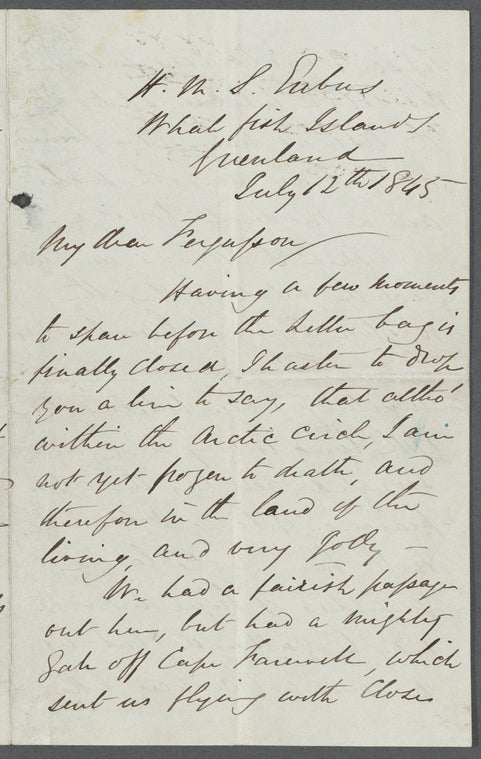 H. M. S. Erebus
Whale fish Islands
Greenland
July 12th 1845
My dear Fergusson
Having a few moments
to spare before the letter bag is
finally closed, I hasten to drop
you a line to say, that altho'
within the Arctic circle, I am
not yet frozen to death, and
therefore in the land of the
living, and very jolly –
We had a fairish passage
out here, but had a mighty
gale off Cape Farewell, which
sent us flying with close